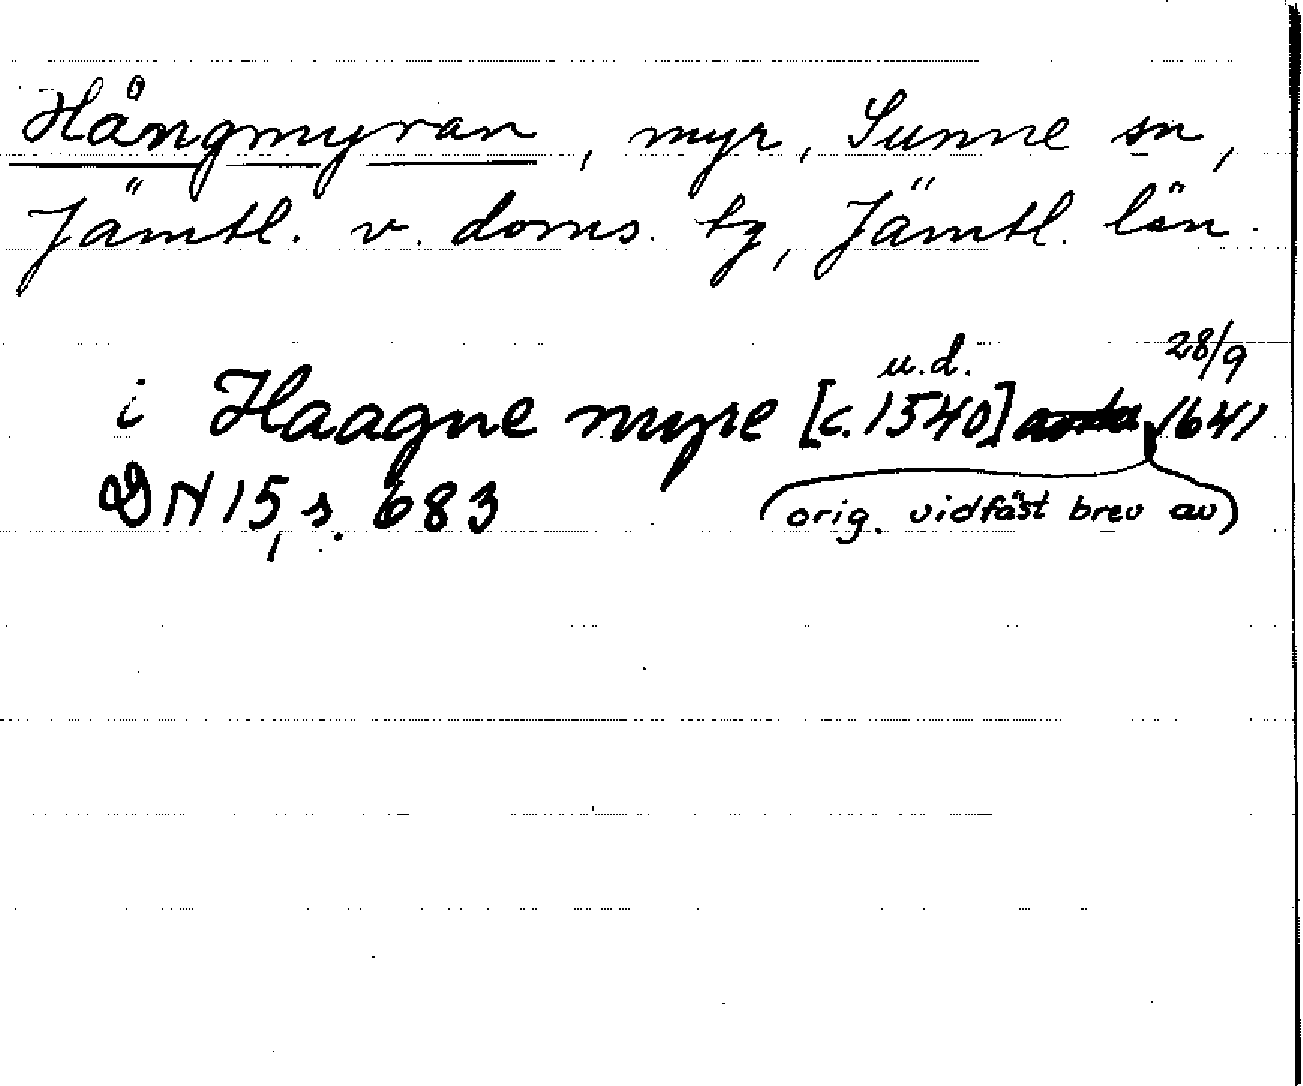 Hångmyran, myr, Sunne sn,
Jämtl. v. doms. tg, Jämtl. län.
u.d. 28/9
i Haagne myre [c. 1540] 1641
DN 15, s. 683 (orig. vidfäst brev av)